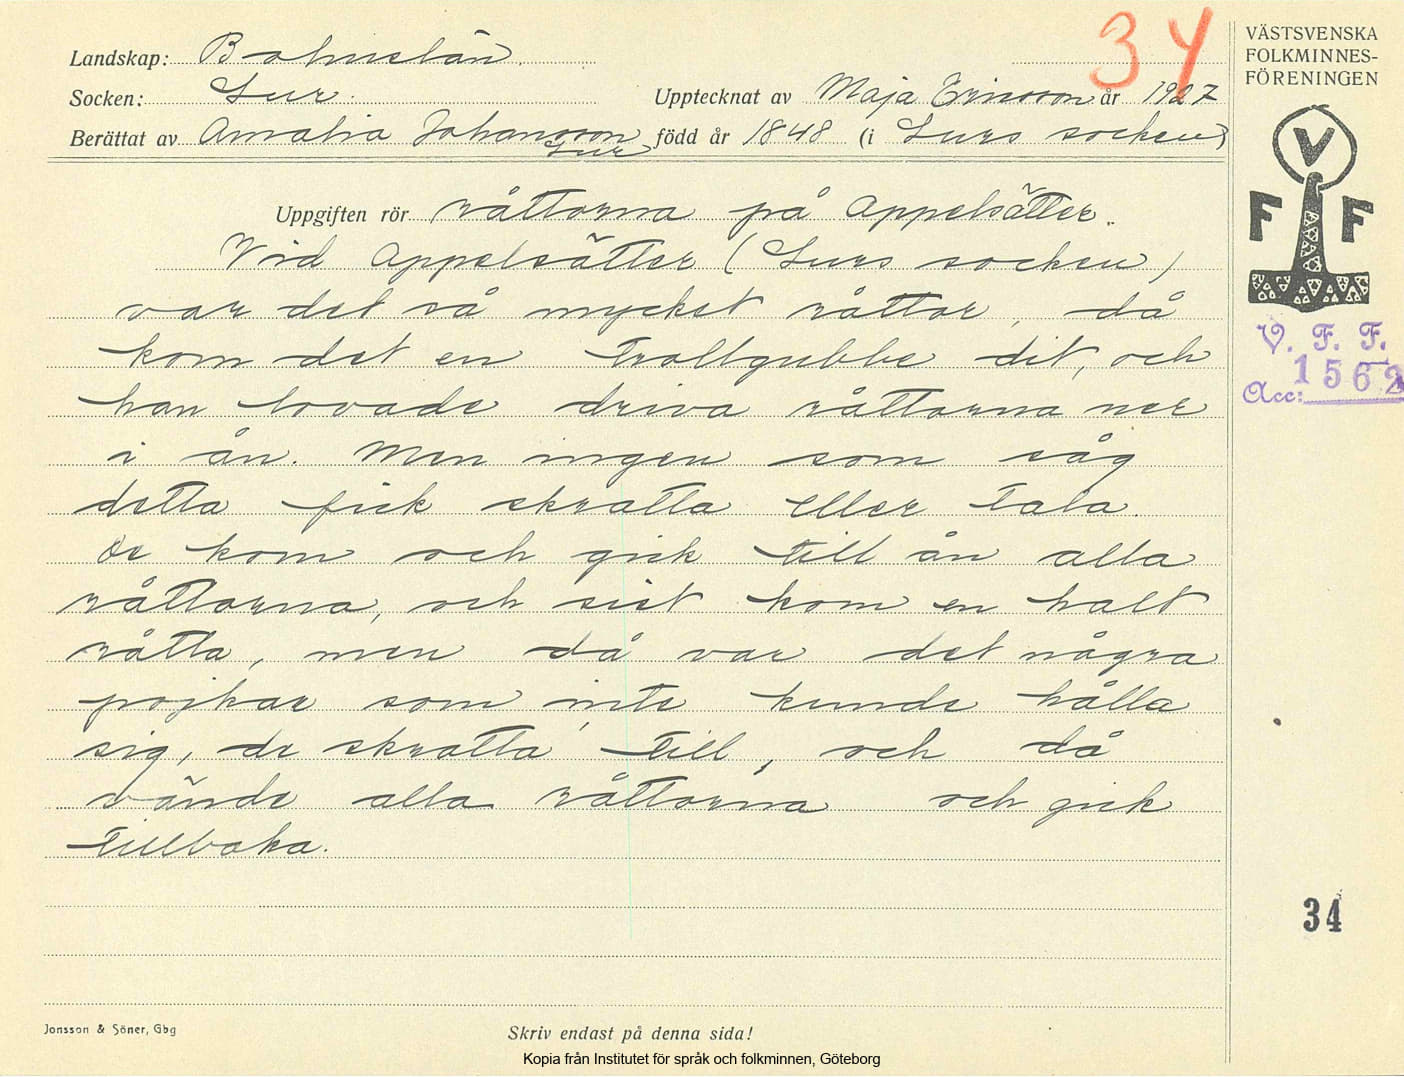 34
VÄSTSVENSKA
FOLKMINNES-
FÖRENINGEN
Landskap: Bohuslän.
Socken: Lur. Upptecknat av Maja Ericsson år 1927
Berättat av Amalia Johansson född år 1848 (i Lurs socken)
Lur
V
F F
V. F. F.
Acc: 1562
Uppgiften rör råttorna på Appelsätter.
Vid Appelsätter (Lurs socken)
var det så mycket råttor, då
kom det en trollgubbe dit, och
han lovade driva råttorna ner
i ån. Men ingen som såg
detta fick skratta eller tala.
De kom och gick till ån alla
råttorna, och sist kom en halt
råtta, men då var det några
pojkar som inte kunde hålla
sig, de skratta till, och då
vände alla råttorna och gick
tillbaka.
34
Jonsson & Söner, Gbg
Skriv endast på denna sida!
Kopia från Institutet för språk och folkminnen, Göteborg